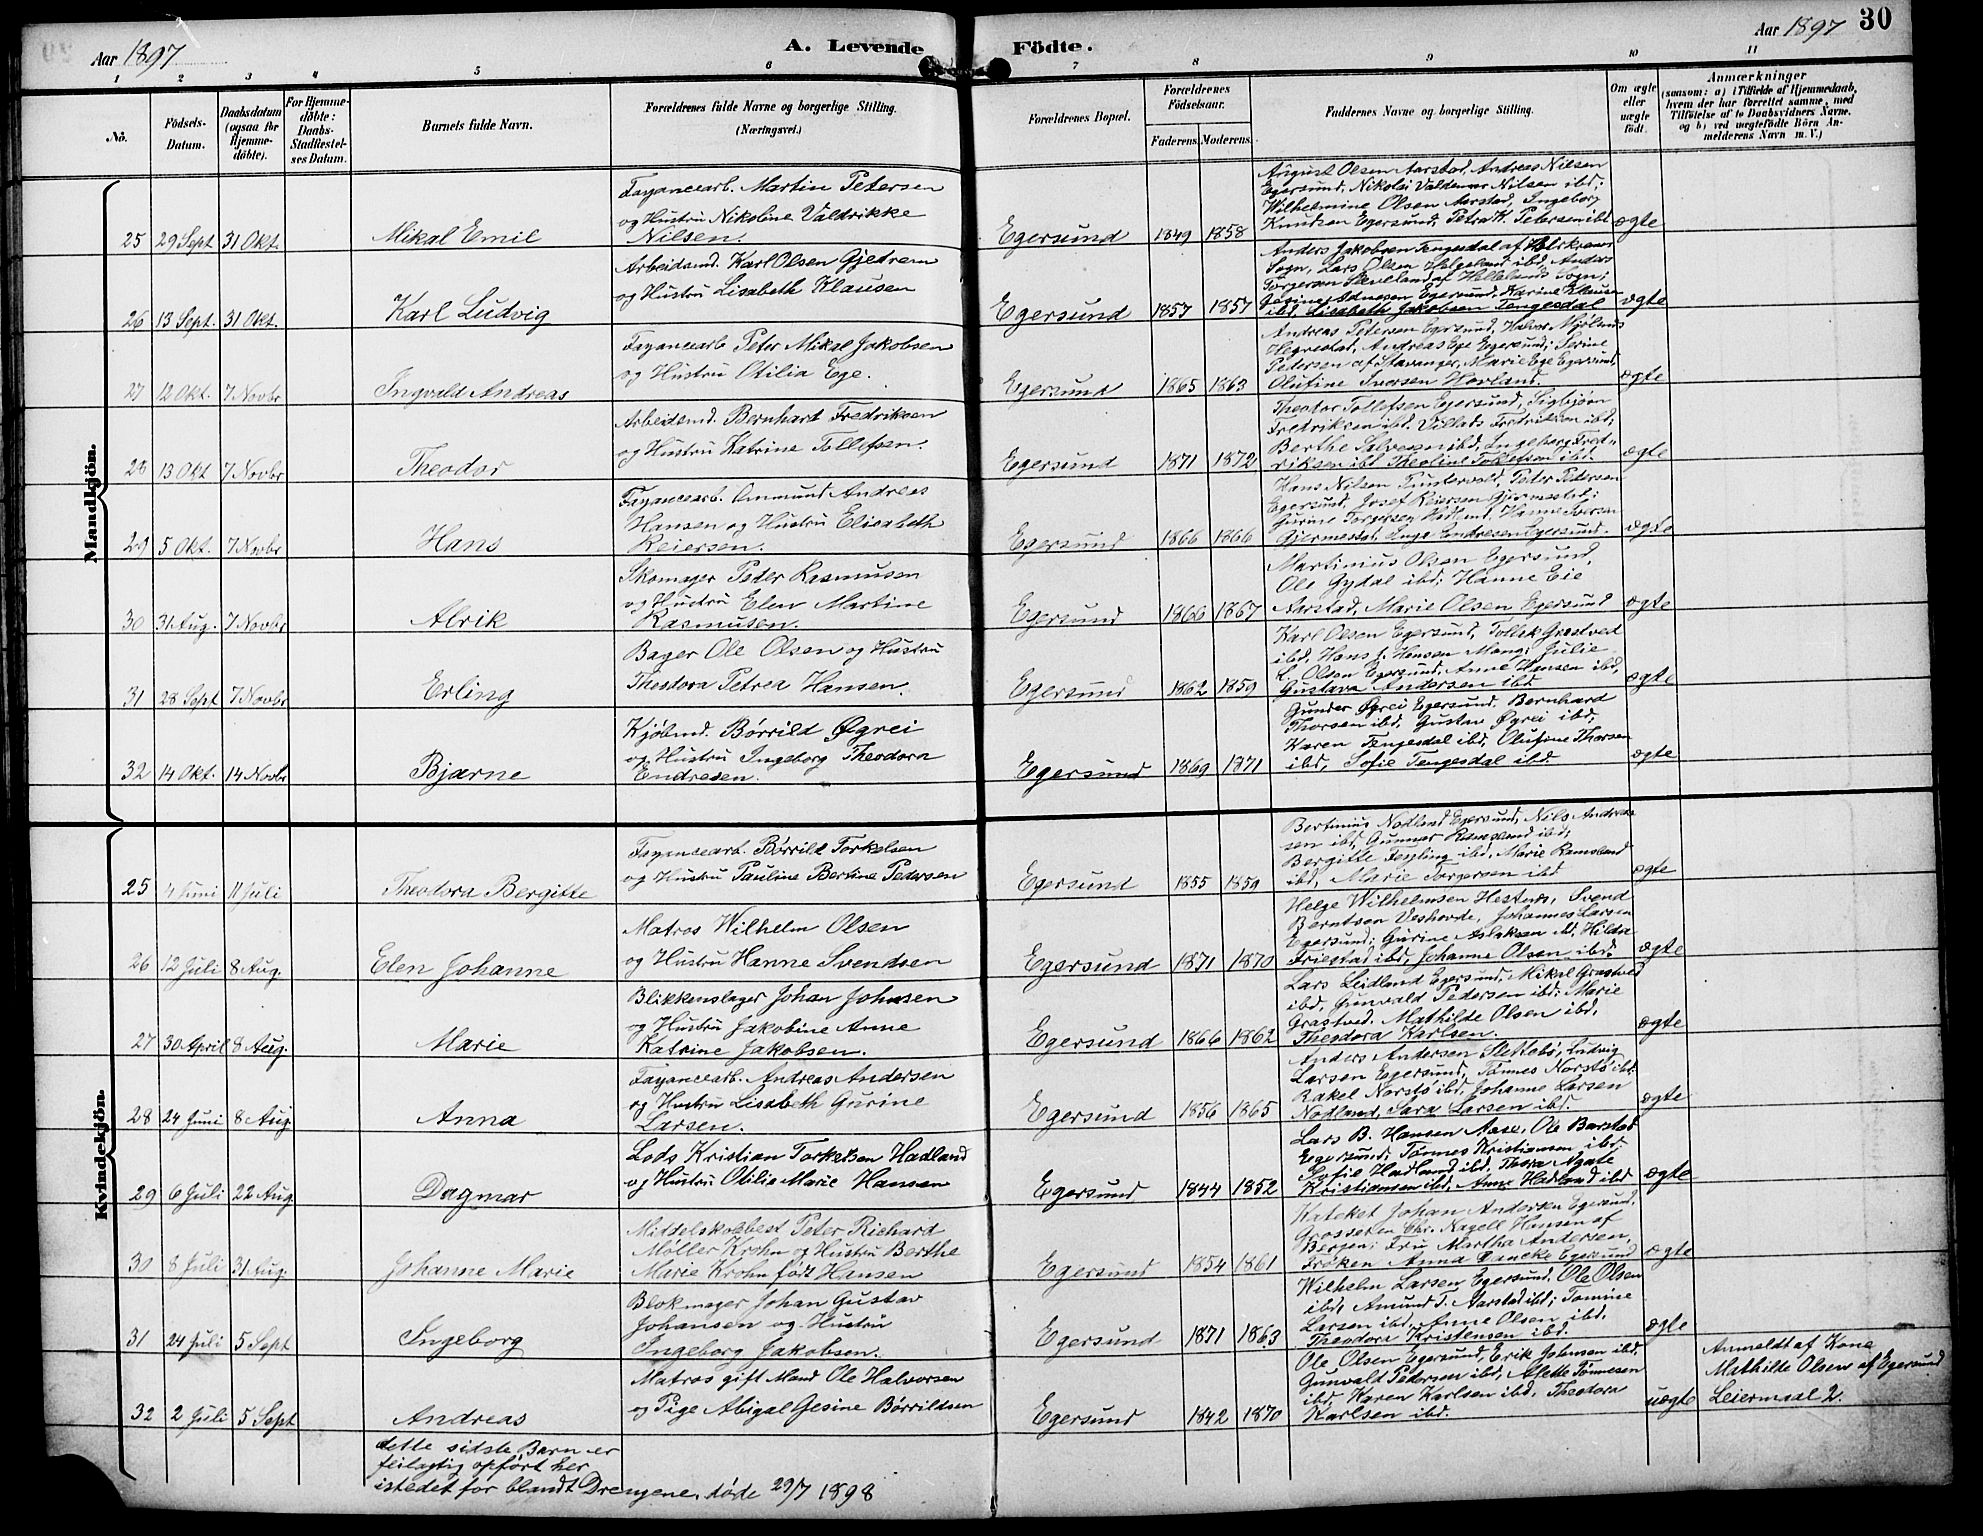 Aar 1897 A. Levende Födte. Aar 1897 30
1 2 3 4 5 6 7 8 9 10 11
No.
Födsels-Datum.
Daabsdatum (ogsaa for Hjemme-döbte).
For Hjemme-döbte: Daabs-Stadfæstel-ses Datum.
Barnets fulde Navn.
Forældrenes fulde Navne og borgerlige Stilling.
(Næringsvei.)
Forældrenes Bopæl.
Forældrenes Födselsaar.
Faderens. Moderens.
Faddernes Navne og borgerlige Stilling.
Om ægte eller uægte födt.
Anmærkninger
(saasom: a) i Tilfælde af Hjemmedaab,
hvem der har forrettet samme, med
Tilföielse af to Daabsvidners Navne,
og b) ved uægtefödte Börn An-
melderens Navn m. V.)
Mandkjön.
25 29 Sept 31 Okt. Mikal Emil
Fayancearb. Martin Petersen
og Hustru Nikoline Valdrikke
Nilsen.
Egersund 1849 1858
August Olsen Aarstad, Andreas Nilsen
Egersund, Nikolai Valdemar Nilsen ibd;
Wilhelmine Olsen Aarstad, Ingeborg
Knudsen Egersund, Petra K. Petersen ibd
ægte
26 13 Sept. 31 Okt. Karl Ludvig
Arbeidsmd. Karl Olsen Gjedrem
og Hustru Lisabeth Klausen
Egersund 1857 1857
Anders Jakobsen Tengesdal af
Sogn, Lars Olsen Helgeland ibd, Anders
Torgersen af Hellelands Sogn;
Egersund, Karine Klausen
ibd, Lisabeth Jakobsen Tengesdal
ægte
27 12 Okt. 7 Novbr Ingvald Andreas
Fayancearb Peter Mikal Jakobsen
og Hustru Otilia Ege.
Egersund 1865 1863
Andreas Petersen Egersund, Halvor Mjølsnes
Hegrestad, Andreas Ege Egersund; Serine
Petersen af Stavanger, Marie Ege Egersund,
Olufine Iversen Hovland.
ægte
28 13 Okt 7 Novbr Theodor
Arbeidsmd. Bernhard Fredriksen
og Hustru Katrine Tollefsen.
Egersund 1871 1872
Theodor Tollefsen Egersund, Sigbjørn
Fredriksen ibd. Villads Fredriksen ibd;
Berthe Salvesen ibd, Ingeborg Fred-
riksen ibd Theoline Tollefsen ibd.
ægte
29 5 Okt. 7 Novbr Hans
Fayancearb. Ommund Andreas
Hansen og Hustru Elisabeth
Reiersen.
Egersund 1866 1866
Hans Nilsen Puntervold, Peter Petersen
Egersund, Josef Reiersen Gjermestad;
Gurine Torgersen Hadland, Hanne Iversen
Gjermestad, Inga Endresen Egersund.
ægte
30 31 Aug. 7 Novbr Alrik
Skomager Peder Rasmusen
og Hustru Elen Martine
Rasmusen.
Egersund 1866 1867
Martinius Olsen Egersund,
Ole Gydal ibd; Hanne Eie
Aarstad, Marie Olsen Egersund
ægte
31 28 Sept 7 Novbr Erling
Bager Ole Olsen og Hustru
Theodora Petrea Hansen.
Egersund 1862 1859
Karl Olsen Egersund, Tollak Grastved
ibd, Hans J. Hansen Mong; Julie
L Olsen Egersund, Anne Hansen ibd,
Gustava Andersen ibd
ægte
32 14 Okt. 14 Novbr Bjarne
Kjøbmd. Børrild Øgrei
og Hustru Ingeborg Theodora
Endresen.
Egersund 1869 1871
Gunder Øgrei Egersund, Bernhard
Thorsen ibd, Gustav Øgrei ibd;
Karen Tengesdal ibd, Olufine Thorsen
ibd, Sofie Tengesdal ibd
ægte
Kvindekjön.
25 4 Juni 11 Juli Theodora Bergitte
Fayancearb. Børrild Torkelsen
og Hustru Pauline Bertine Pedersen
Egersund 1855 1859
Bertinius Nodland Egersund, Nils Andrea-
sen ibd, Gunnar Ramsland ibd;
Bergitte Fesgling ibd, Marie Ramsland
ibd, Marie Torgersen ibd
ægte
26 12 Juli 8 Aug. Elen Johanne
Matros Wilhelm Olsen
og Hustru Hanne Svendsen
Egersund 1871 1870
Helge Wilhelmsen Hestnes, Svend
Berntsen Veshovde, Johannes Larsen
Egersund; Gurine Aslaksen ibd, Hilda
Friestad ibd, Johanne Olsen ibd.
ægte
27 30 April 8 Aug. Marie
Blikkenslager Johan Johnsen
og Hustru Jakobine Anne
Katrine Jakobsen.
Egersund 1866 1862
Lars Leidland Egersund, Mikal Grastved
ibd, Gunvald Pedersen ibd; Marie
Grastved. Mathilde Olsen ibd,
Theodora Karlsen.
ægte
28 24 Juni 8 Aug Anna
Fayancearb. Andreas Andersen
og Hustru Lisabeth Gurine
Larsen.
Egersund 1856 1865
Anders Andersen Slettebø, Ludvig
Larsen Egersund, Tønnes Norstø ibd.
Rakel Norstø ibd, Johanne Larsen
Nodland, Sara Larsen ibd.
ægte
29 6 Juli 22 Aug. Dagmar
Lods Kristian Torkelsen Hadland
og Hustru Otilie Marie Hansen
Egersund 1844 1852
Lars B. Hansen Aase, Ole Barstad
Egersund, Tønnes Kristiansen ibd,
Sofie Hadland ibd, Thora Agate
Kristiansen ibd, Anne Hadland ibd
ægte
30 8 Juli 31 Aug. Johanne Marie
Middelskolbest Peter Richard
Møller Krohn og Hustru Berthe
Marie Krohn født Hansen
Egersund 1854 1861
Kateket Johan Andersen Egersund,
Grosserer Chr. Nagell Hansen af
Bergen; Fru Martha Andersen,
Frøken Anna Dancke Egersund
ægte
31 24 Juli 5 Sept Ingeborg
Blokmager Johan Gustav
Johansen og Hustru
Ingeborg Jakobsen.
Egersund 1871 1863
Wilhelm Larsen Egersund, Ole Olsen
ibd, Amund T. Aarstad ibd; Tomine
Larsen ibd, Anne Olsen ibd.
Theodora Kristensen ibd.
ægte
32 2 Juli 5 Sept Andreas
Matros gift Mand Ole Halvorsen
og Pige Abigal Gesine Børrildsen
Egersund 1842 1870
Ole Olsen Egersund, Erik Johnsen ibd.
Gunvald Pedersen ibd; Alette Tønnesen
ibd, Karen Karlsen ibd. Theodora
Karlsen ibd.
uægte
Anmeldt af Kone
Mathilde Olsen af Egersund
Leiermaal 2.
dette sidste Barn er
feilagtig opført her
istedet for blandt Drengene, døde 29/7 1898